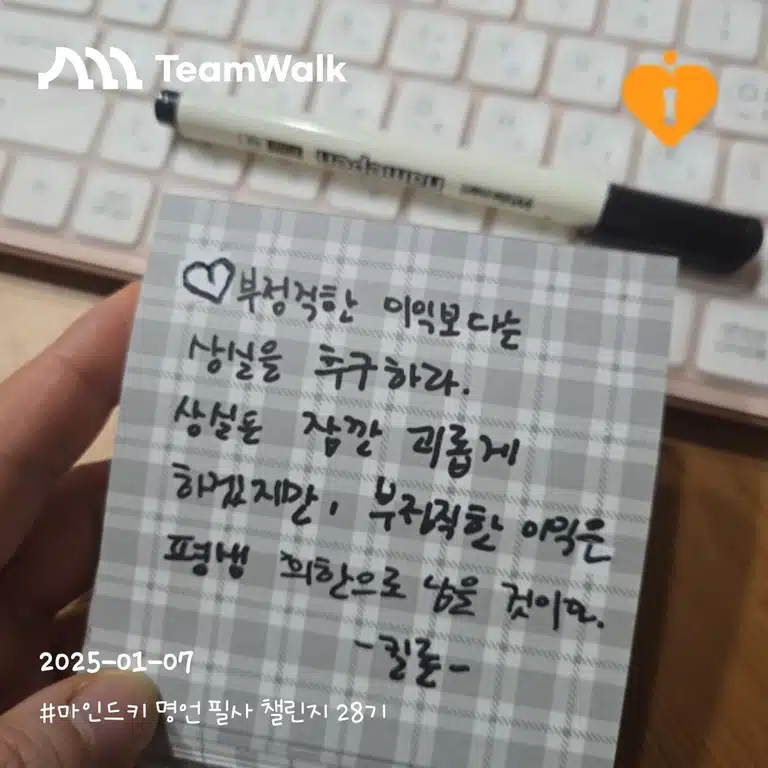 TeamWalk
1
namepen
♡부정직한 이익보다는
상실을 추구하라.
상실은 잠깐 괴롭게
하겠지만, 부정직한 이익은
평생 회한으로 남을 것이다.
-킬론-
2025-01-07
#마인드키 명언 필사 챌린지 28기